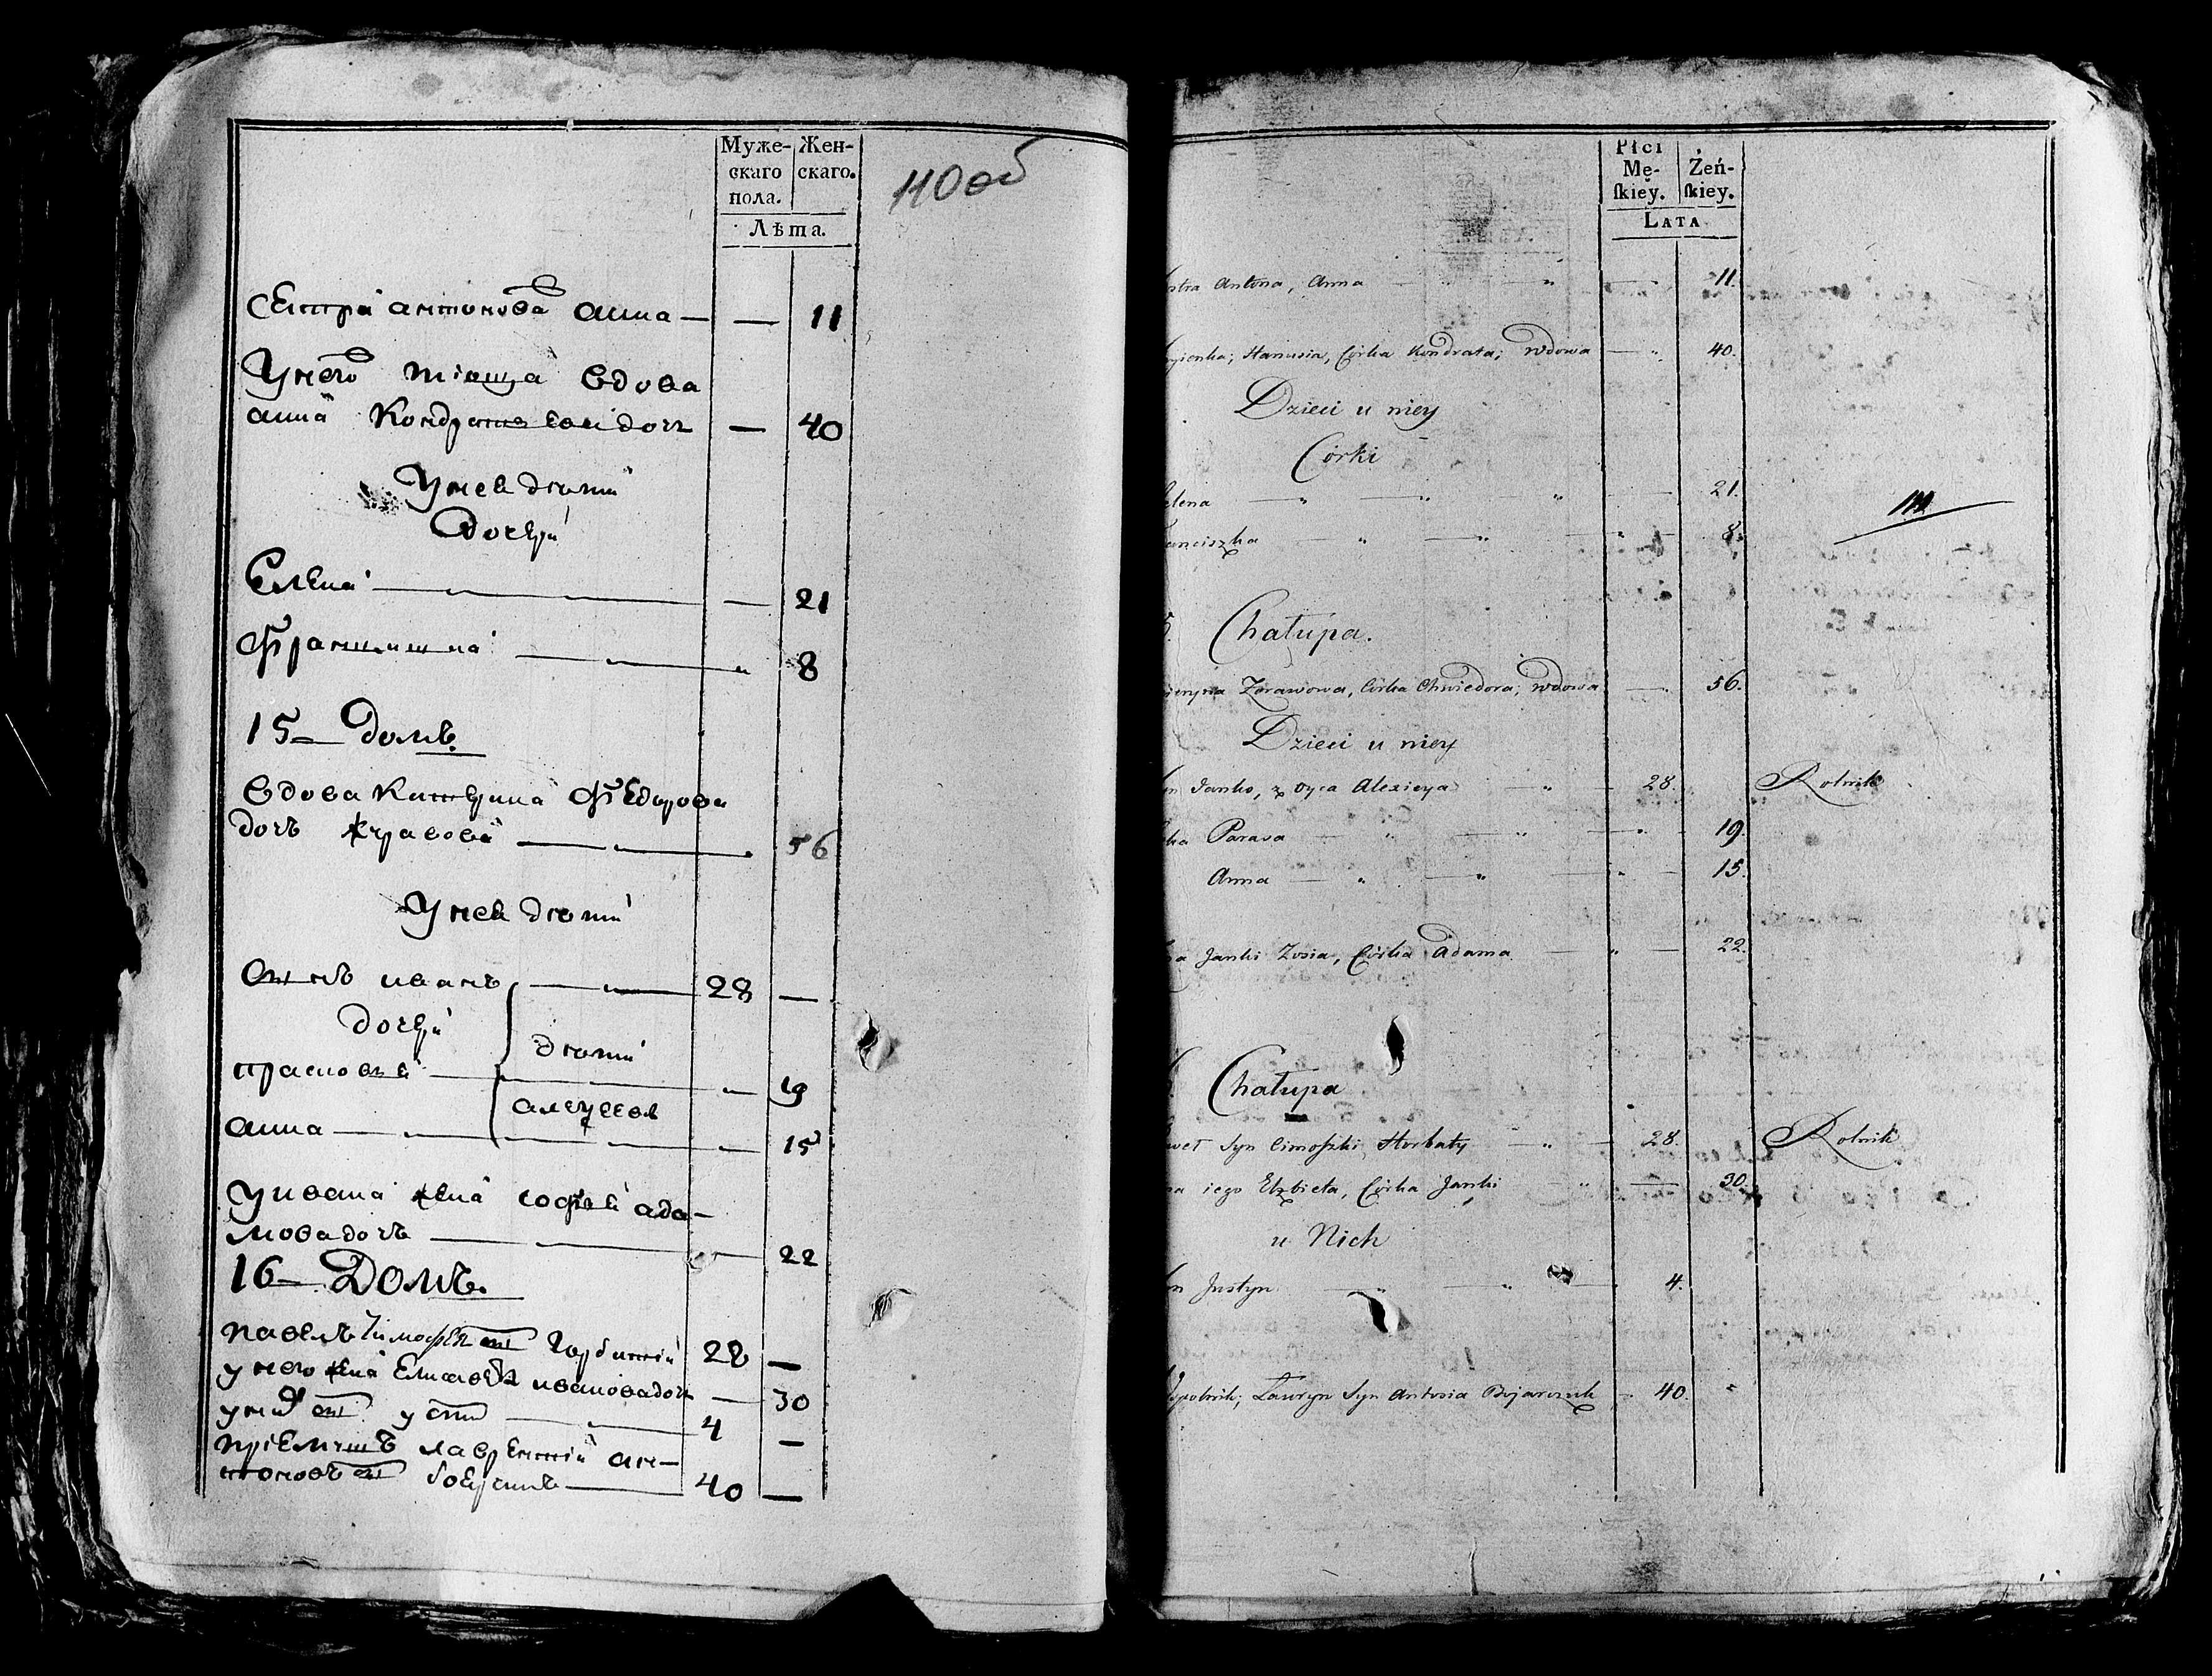 Муже-
скаго
пола.
Жен-
скаго.
Лѣта.
110 об
Сестра антонова анна — — 11
У него тіоща вдова
анна Кондратьеваидочъ — 40
У нея дѣти
Дочери
Елена — — 21
Францишка — 8
15 — Домъ.
Вдова Катерина Федорова
дочь журавова — 56
У нея дѣти
Сынъ иванъ — 28 —
дочери
дѣти
прасковея — 19
алеѯеевы
анна — 15
У ивана жена софея ада-
мова дочь — 22
16 — Домъ.
Павелъ Тимофеевъ сы Горбатій 28 —
у него жена Елисавета ивановадочъ — 30
у них сы устин — 4 —
пріемышъ лаврентій ан-
тоновъ сы боярчикъ — 40 —
Płci
Mę-
skiey.
Żeń-
skiey.
LATA
stra Antona, Anna — " — " — 11.
Hanusia, Córka Kondrata; Wdowa — " 40.
Dzieci u niey
Córki
elena — " — " — " — 21.
anciszka — " — " — " — 8.
111
5. Chałupa.
eryna Zorawowa, Córka Chwiedora; Wdowa — 56.
Dzieci u niey
n Janko, z oyca Alexieya — " — 28. Rolnik
ka Parasa — " — " — " — 19.
Anna — " — " — " — 15.
a Janki Zosia, Córka Adama — " — 22.
Chałupa
weł Syn Cimoszki Horbaty — " — 28. Rolnik
a iego Elzbieta, Córka Janki — " — 30.
u Nich
n Justyn — " — " — 4.
Ławryn Syn Antosia Bojarczuk — 40. "